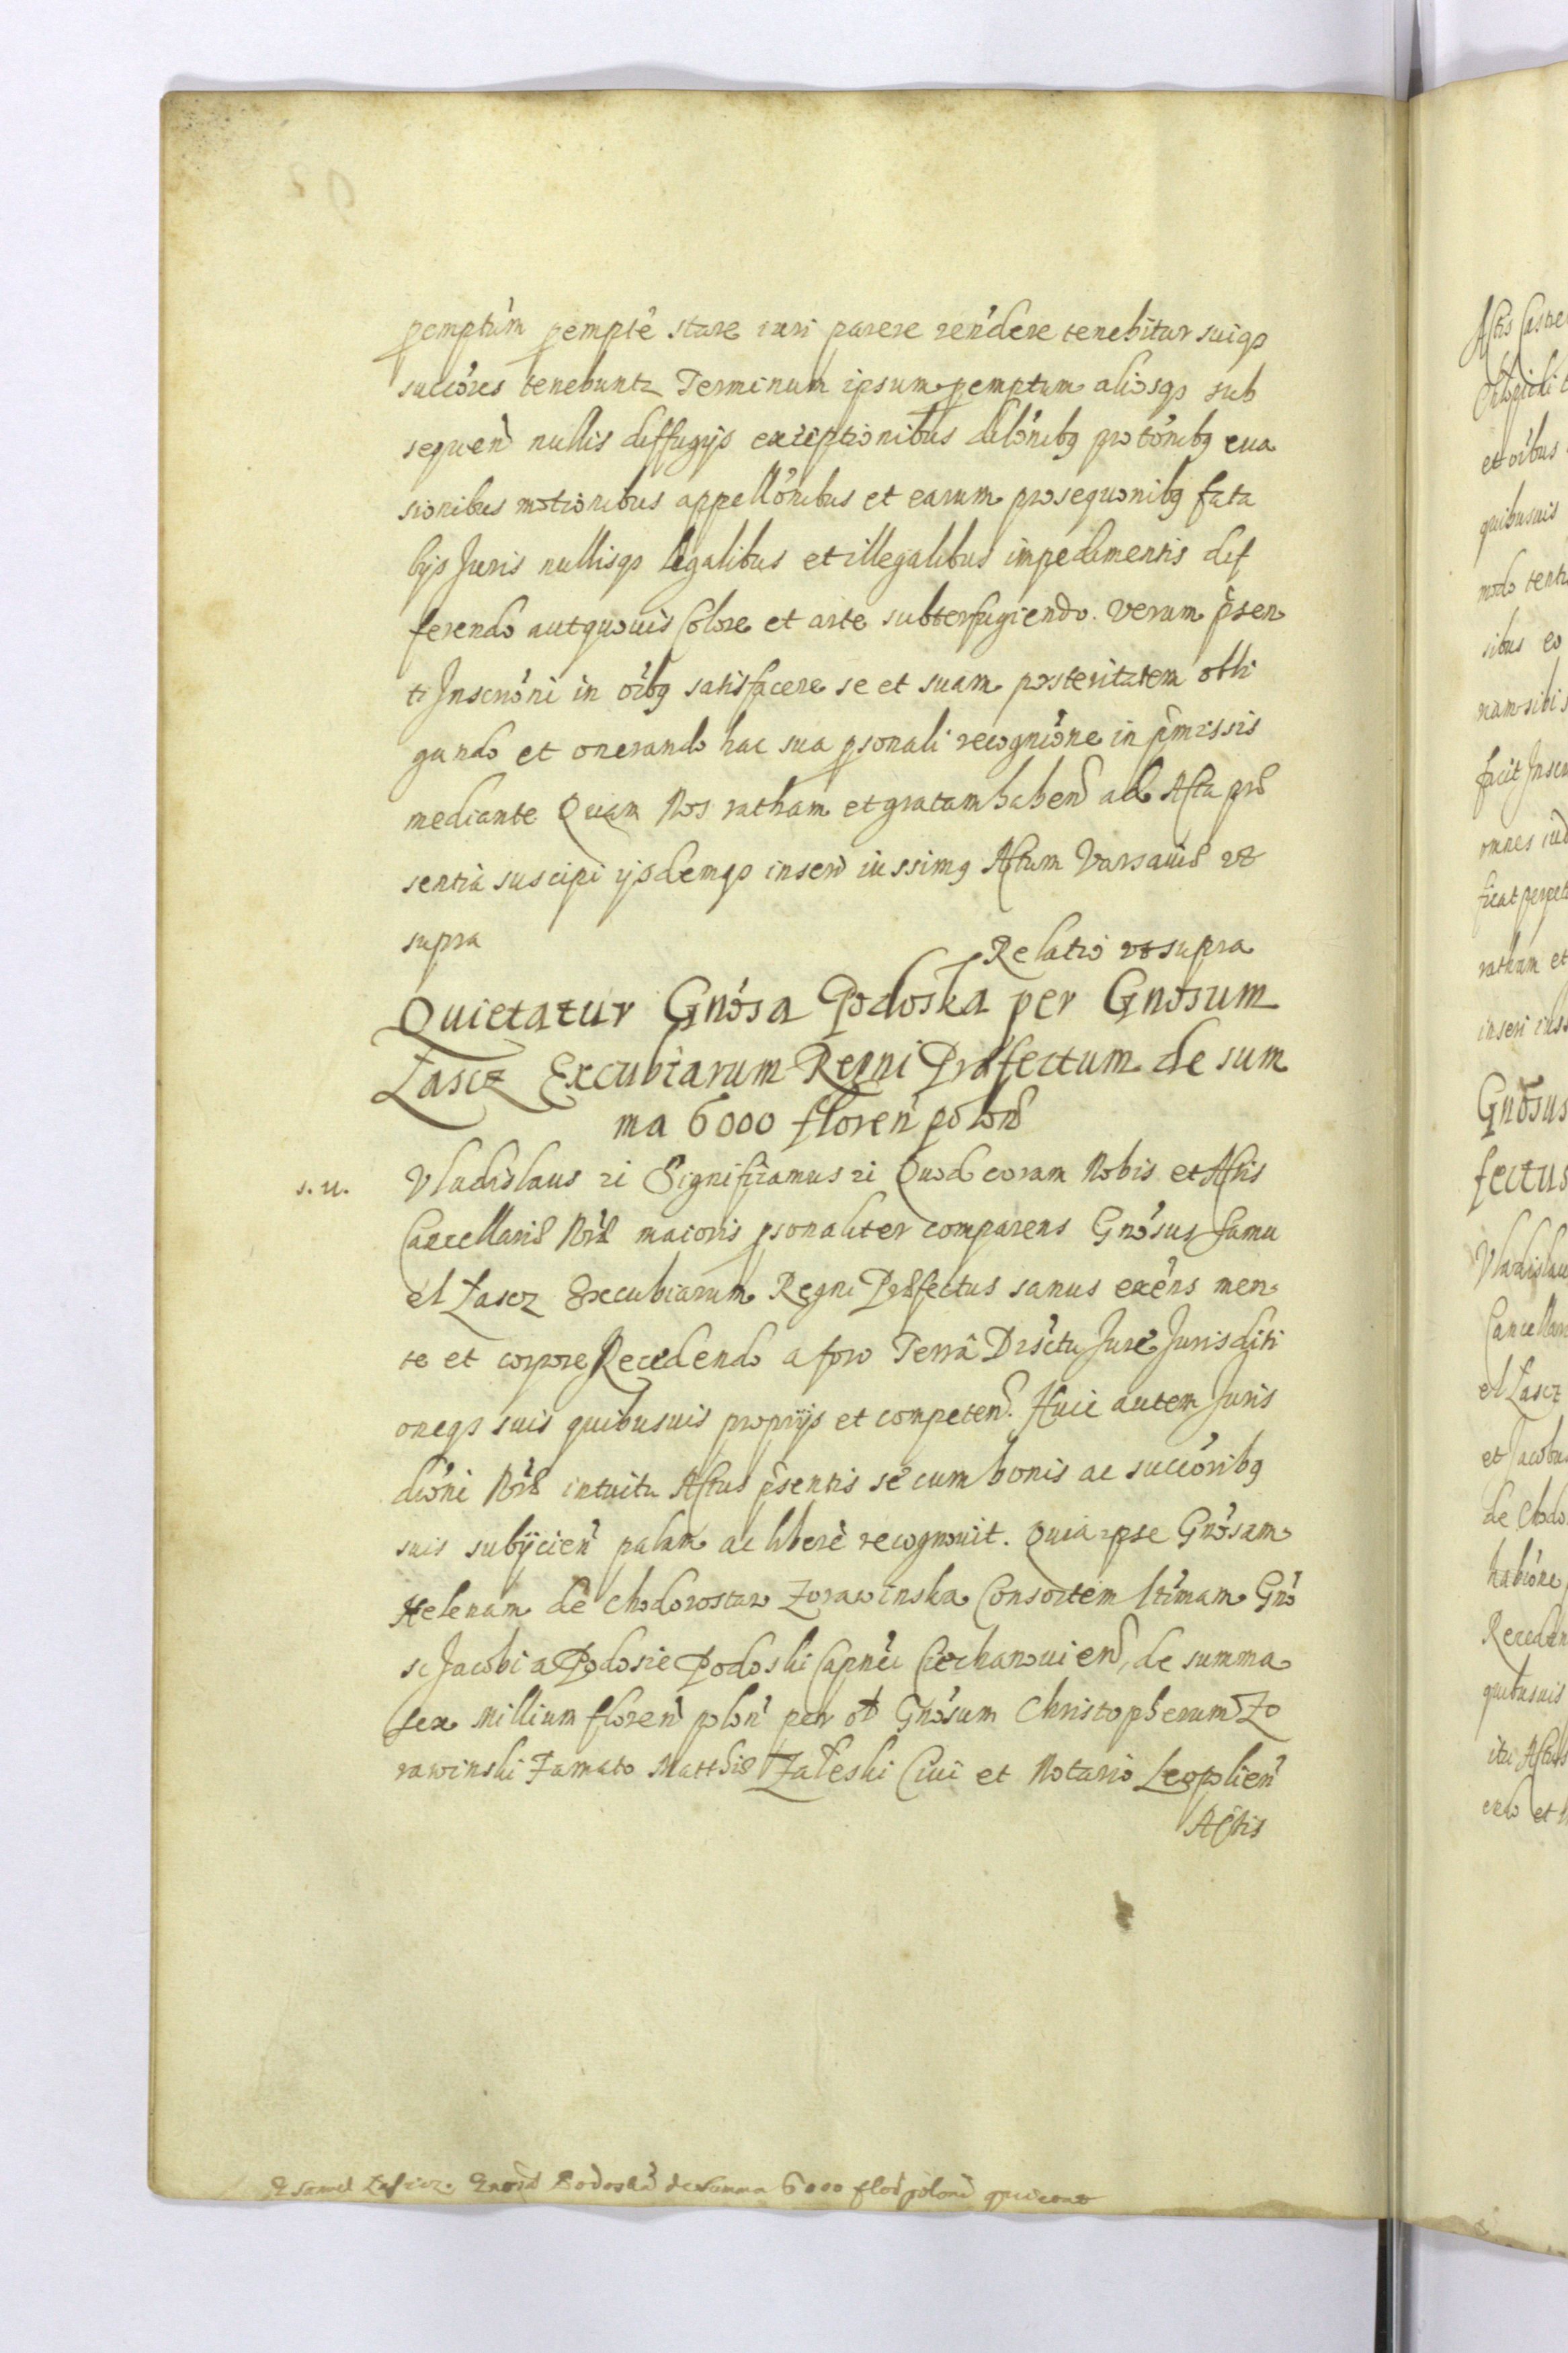 pemptm pempte stare iuri parere rendere tenebitur suiqz
succores tenebuntz Terminum ipsum pemptum aliosqz sub
sequen nullis deffugÿs exceptionibus dilonibq protonibq eua
sionibus motionibus appellonibus et earum prosequonibq fata
lÿs Juris nullisqz legalibus et illegalibus impedimentis dif
ferendo aut quouis Colore et arte subterfugiendo. Verum psen
ti Inscnoni in oibq satisfacere se et suam posteritatem obli
gando et onerando hac sua psonali recognione in pmissis
mediante Quam Nos ratham et gratam haben ad Acta prae
sentia suscipi ÿsdemqz inseri iussimq Actum Varsauiae vt
supra
Relatio vt supra
Quietatur Gnosa Podoska per Gnosum
Łascz Excubiarum Regni Præfectum de sum
ma 6000 floren polon
s. u. Vladislaus zi Significamus zi Quod coram Nobis et Actis
Cancellariae Nrae maioris psonaliter comparens Gnosus Samu
el Łascz Excubiarum Regni Praefectus sanus exens men
te et corpore Recedendo a foro Terra Drictu Jure Jurisditi
oneqz suis quibusuis proprÿs et competen. Huic autem Juris
dioni Nrae intuitu Actus psentis se cum bonis ac succoribq
suis subÿcien palam ac libere recognouit. Quia ipse Gnosam
Helenam de Chodorostaw Zorawinska Consortem ltimam Gno
si Jacobi a Podosie Podoski Capnei Ciechanouien, de summa
sex Millium floren polon per ol Gnosum Christopherum Zo
rawinski Famato Matthiae Zaleski Ciui et Notario Leopolien
Actis
Samuel Łascz Podoska de summa 6000 flor polon
Actis Castre
et oibus
quibusuis
modo
sibus eo
nam sibi
facit Inscr
omnes iud
ficat perpet
ratham et
inseri iuss
Gnosus
fectus
Vladislau
Cancellar
el Łascz
et Jacobu
de Chodo
Receden
quibusuis
itu Actus
endo et